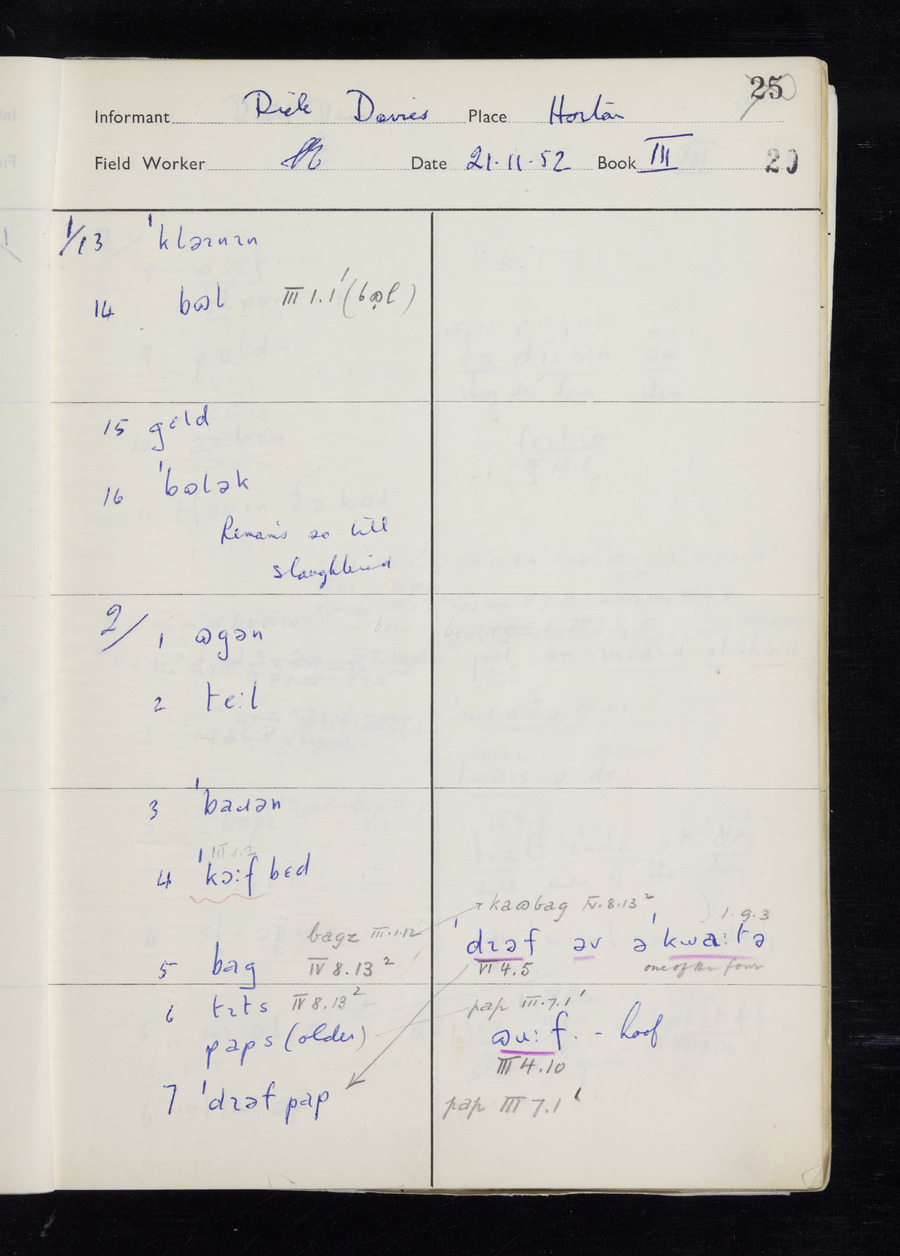 25
Informant Dick Davies Place Horton
Field Worker Date 21·11·52 Book III 20
1/13 ˈkləɪnɪn
14 bʊl III 1.1ˈ (bʊ̣l)
15 gɛld
16 ˈbʊlək
Remains so till
slaughtered
2/ 1 ʊgən
2 te:l
3 ˈbaɹən
III.1.2
4 ˈkɔ:f bɛd
kaʊbag IV.8.13²
1.9.3
bagz III.1.12
5 bag IV 8.13²
ˈdɹəf əv ə ˈkwa:tə
VI 4.5 one of the four
6 tɪts IV 8.13²
paps (older)
pap III.7.1ˈ
ʊu:f. - hoof
III 4.10
7 ˈdɹəf pap
pap III 7.1ˈ